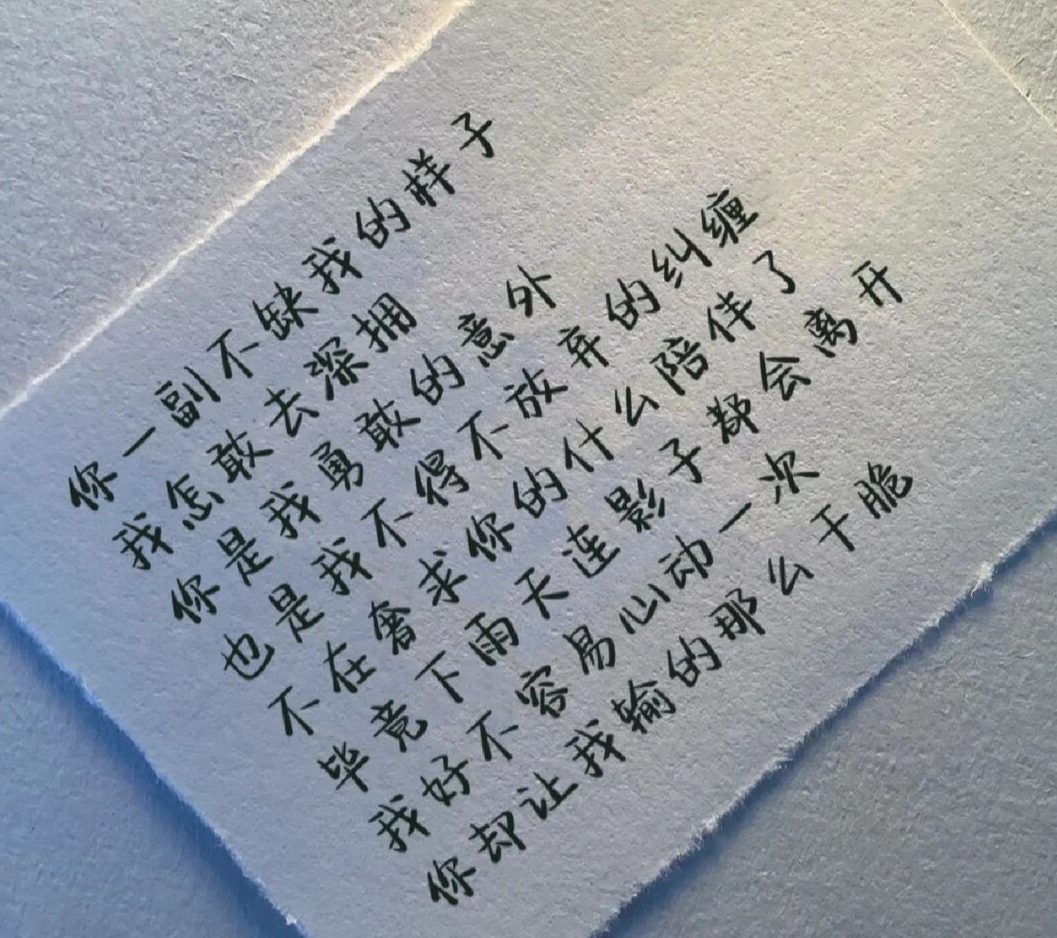 你一副不缺我的样子
我怎敢去深拥
你是我勇敢的意外
也是我不得不放弃的纠缠
不在奢求你的什么陪伴了
毕竟下雨天连影子都会离开
我好不容易心动一次
你却让我输的那么干脆